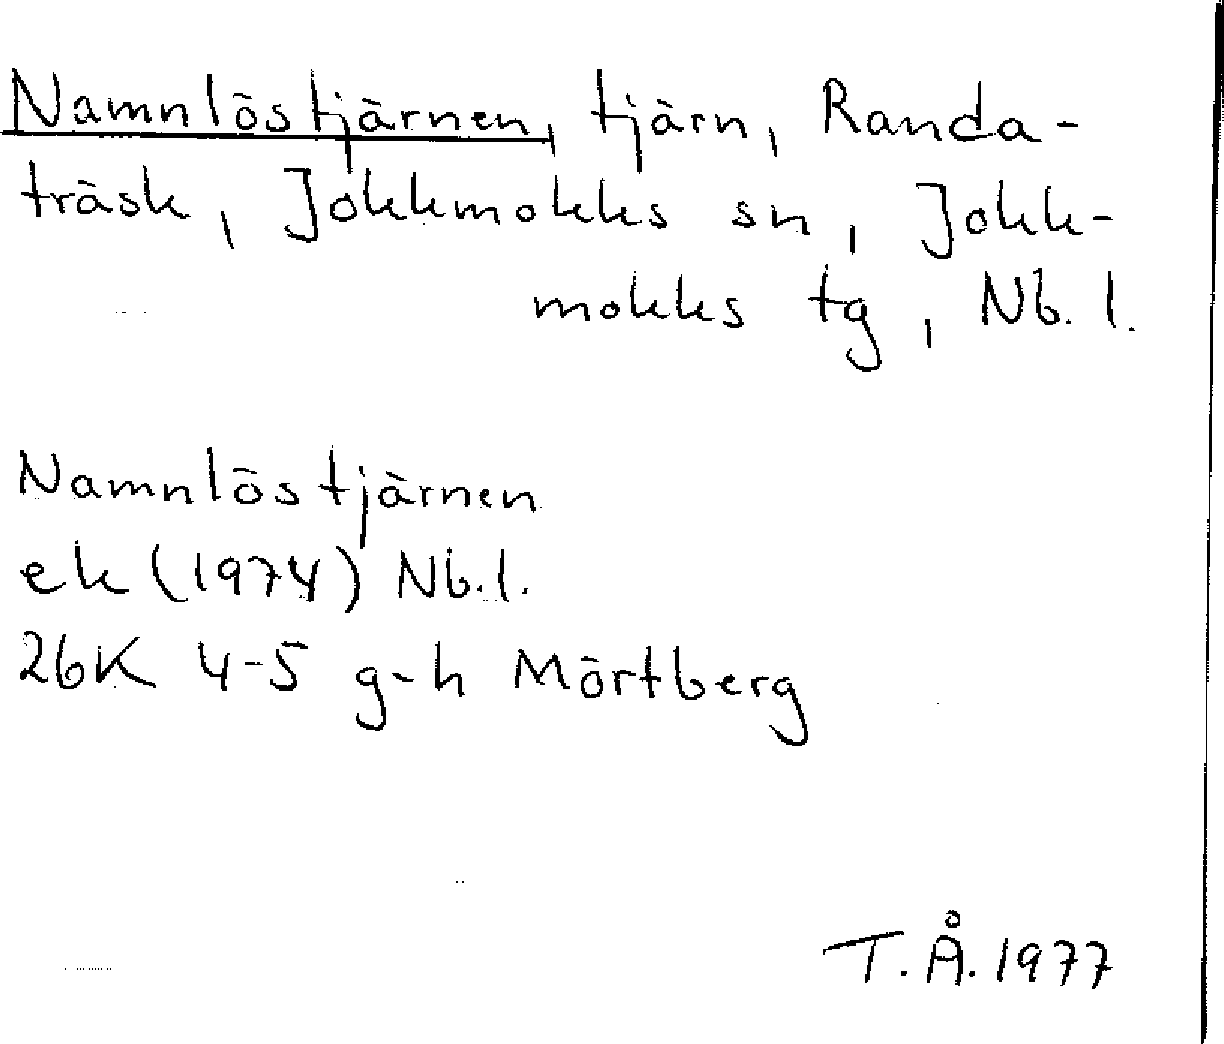 Namnlöstjärnen, tjärn, Randa-
träsk, Jokkmokks sn, Jokk-
mokks tg, Nb. l.
Namnlöstjärnen
ek (1974) Nb. l.
26K 4-5 g-h Mörtberg
T. Å. 1977